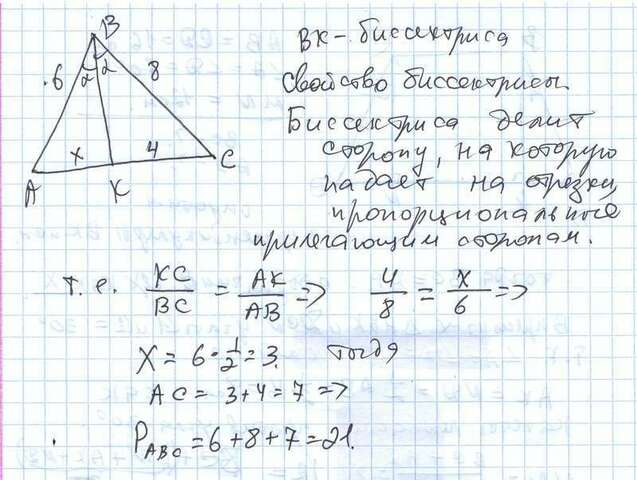 B
6 2 2 8
x 4
A K C
BK - биссектриса
Свойство биссектрисы.
Биссектриса делит
сторону, на которую
падает на отрезки,
пропорциональные
прилегающим сторонам.
т. е. KC/BC = AK/AB => 4/8 = x/6 =>
X = 6 · 1/2 = 3. тогда
AC = 3+4 = 7 =>
P ABC = 6+8+7 = 21.